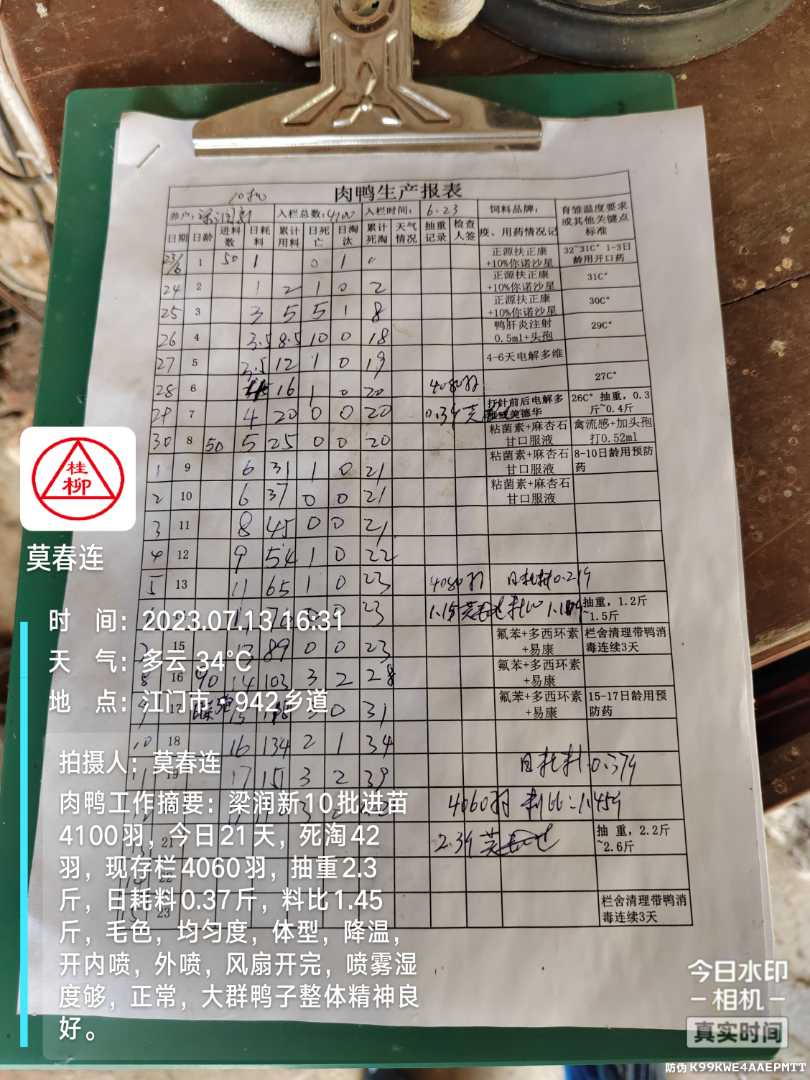 肉鸭生产报表
10批
养户:梁润新 入栏总数:4100 入栏时间: 6.23 饲料品牌: 育雏温度要求或其他关键点标准
日期 日龄 进料数 日耗料 累计用料 日死亡 日淘汰 累计死淘 天气情况 抽重记录 检查人签 疫、用药情况记
23/6 1 50 1 0 1 0 正源扶正康+10%你诺沙星 32~31C° 1-3日龄用开口药
24 2 1 2 1 0 2 正源扶正康+10%你诺沙星 31C°
25 3 3 5 5 1 8 正源扶正康+10%你诺沙星 30C°
26 4 3.5 8.5 10 0 18 鸭肝炎注射0.5ml+头孢 29C°
27 5 3.5 12 1 0 19 4-6天电解多维
28 6 16 1 0 20 4080羽 27C°
29 7 4 20 0 0 20 0.39 打针前后电解多 26C° 抽重,0.3斤~0.4斤
30 8 50 5 25 0 0 20 粘菌素+麻杏石甘口服液 禽流感+加头孢打0.52ml
1 9 6 31 1 0 21 粘菌素+麻杏石甘口服液 8-10日龄用预防药
2 10 6 37 0 0 21 粘菌素+麻杏石甘口服液
3 11 8 45 0 0 21
4 12 9 54 1 0 22
5 13 11 65 1 0 23 4080羽 日耗料0.27斤
23 1.15 料比 抽重,1.2斤~1.5斤
15 89 0 0 23 氟苯+多西环素+易康 栏舍清理带鸭消毒连续3天
8 16 90 14 103 3 2 28 氟苯+多西环素+易康
9 17 15 0 31 氟苯+多西环素+易康 15-17日龄用预防药
10 18 16 134 2 1 34
19 17 15 3 2 39 日耗料0.37斤
4060羽 料比:1.45斤
21 2.3斤 抽重,2.2斤~2.6斤
22
23 栏舍清理带鸭消毒连续3天
桂柳
莫春连
时 间:2023.07.13 16:31
天 气:多云 34℃
地 点:江门市·942乡道
拍摄人:莫春连
肉鸭工作摘要:梁润新10批进苗
4100羽,今日21天,死淘42
羽,现存栏4060羽,抽重2.3
斤,日耗料0.37斤,料比1.45
斤,毛色,均匀度,体型,降温,
开内喷,外喷,风扇开完,喷雾湿
度够,正常,大群鸭子整体精神良
好。
今日水印
相机
真实时间
防伪 K99KWE4AAEPMTT